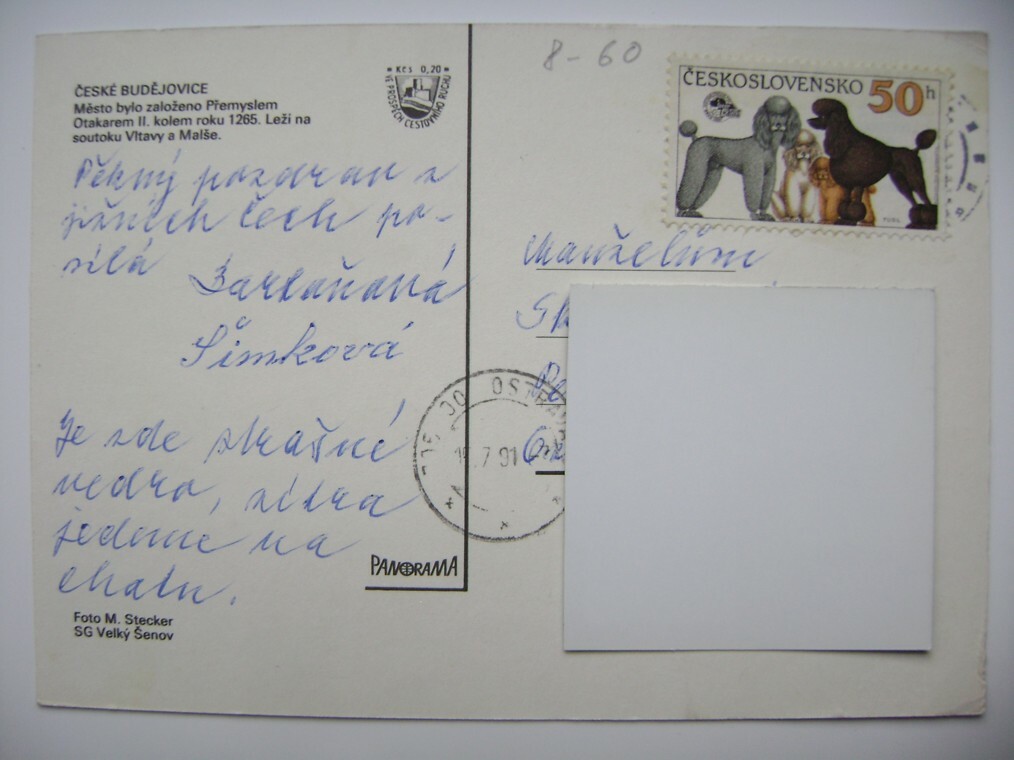 8-60
ČESKÉ BUDĚJOVICE
Město bylo založeno Přemyslem
Otakarem II. kolem roku 1265. Leží na
soutoku Vltavy a Malše.
* Kčs 0,20 *
VE PROSPĚCH CESTOVNÍHO RUCHU
ČESKOSLOVENSKO 50h
Pěkný pozdrav z
jižních Čech po-
sílá
Šimková
Je zde strašné
vedro, zítra
jedeme na
chatu.
PANORAMA
Foto M. Stecker
SG Velký Šenov
Manželům
OSTRA
7 91